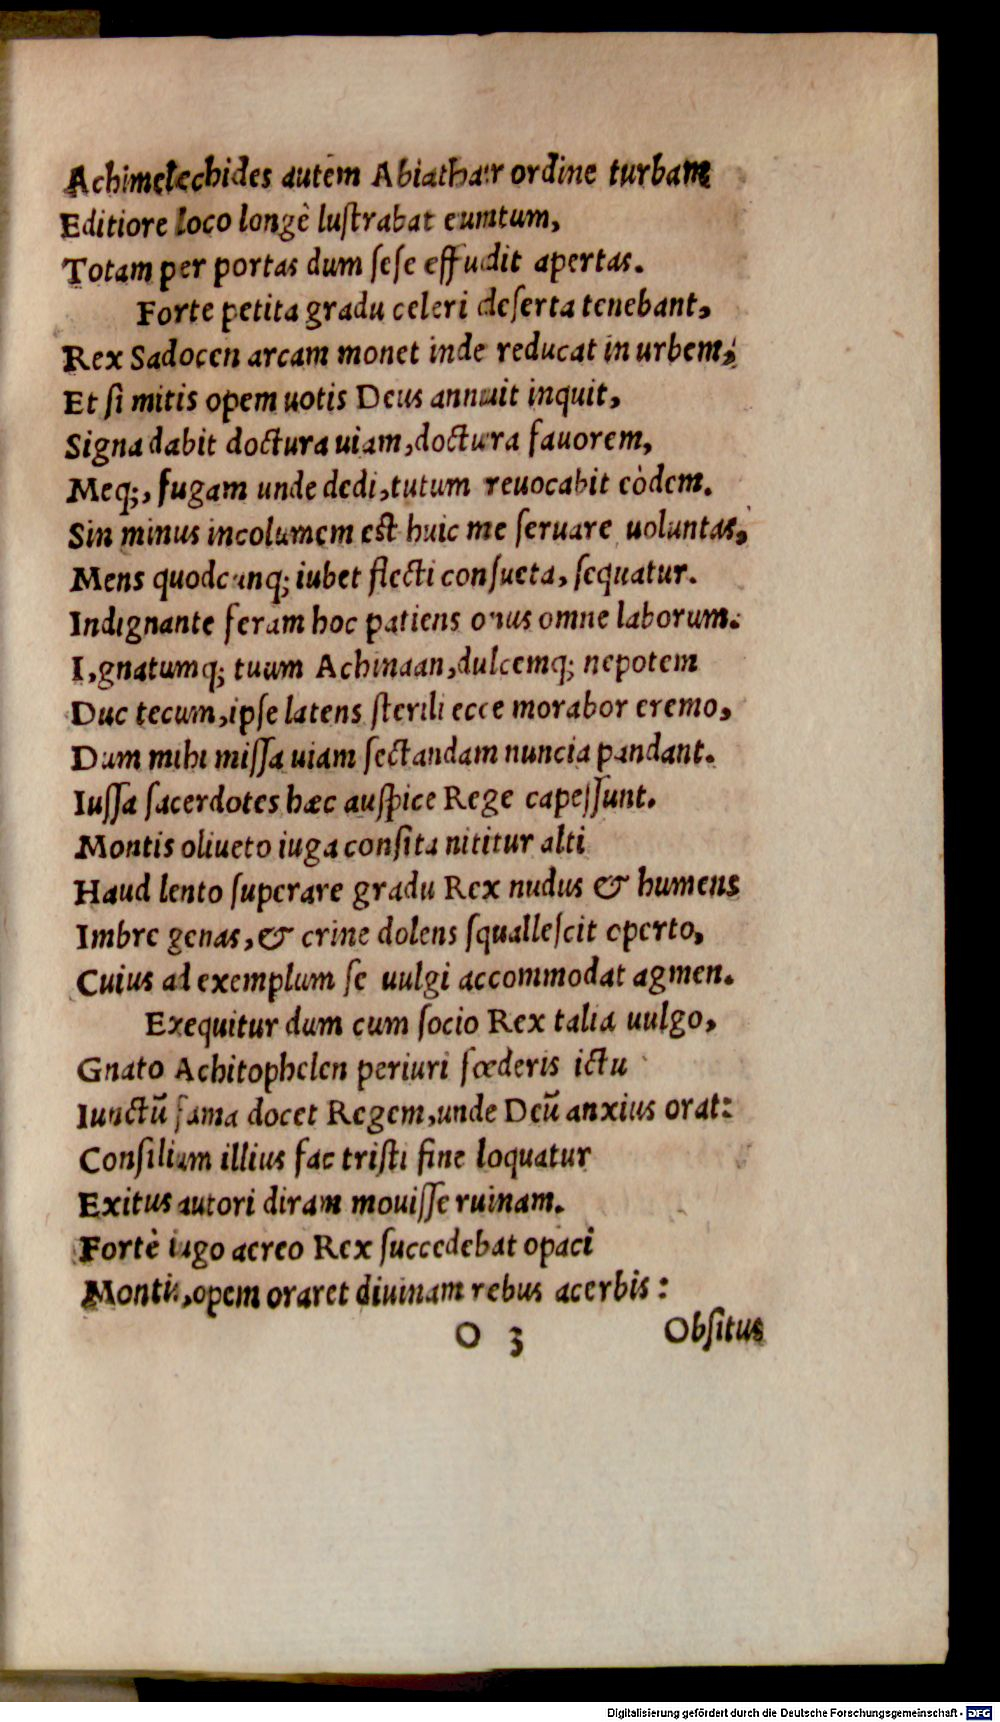 Achimelechides autem Abiathar ordine turbam
Editiore loco longè lustrabat euntum,
Totam per portas dum sese effudit apertas.
Forte petita gradu celeri deserta tenebant,
Rex Sadocen arcam monet inde reducat in urbem,
Et si mitis opem uotis Deus annuit inquit,
Signa dabit doctura uiam, doctura fauorem,
Meq;, fugam unde dedi, tutum reuocabit eòdem.
Sin minus incolumem est huic me seruare uoluntas,
Mens quodcunq; iubet flecti consueta, sequatur.
Indignante feram hoc patiens onus omne laborum.
I, gnatumq; tuum Achimaan, dulcemq; nepotem
Duc tecum, ipse latens sterili ecce morabor eremo,
Dum mihi missa uiam sectandam nuncia pandant.
Iussa sacerdotes hæc auspice Rege capessunt.
Montis oliueto iuga consita nititur alti
Haud lento superare gradu Rex nudus & humens
Imbre genas, & crine dolens squallescit operto,
Cuius ad exemplum se uulgi accommodat agmen.
Exequitur dum cum socio Rex talia uulgo,
Gnato Achitophelen periuri fœderis ictu
Iunctũ fama docet Regem, unde Deũ anxius orat:
Consilium illius fac tristi fine loquatur
Exitus autori diram mouisse ruinam.
Fortè iugo aereo Rex succedebat opaci
Montis, opem oraret diuinam rebus acerbis:
O 3 Obsitus
Digitalisierung gefördert durch die Deutsche Forschungsgemeinschaft - DFG